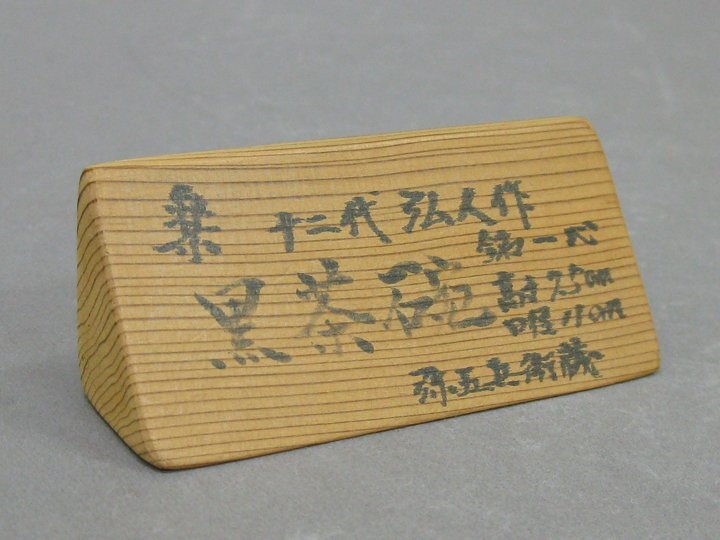 楽 十二代 弘入作
黒茶碗
高サ 7.5cm
口径 11cm
弥五兵衛蔵